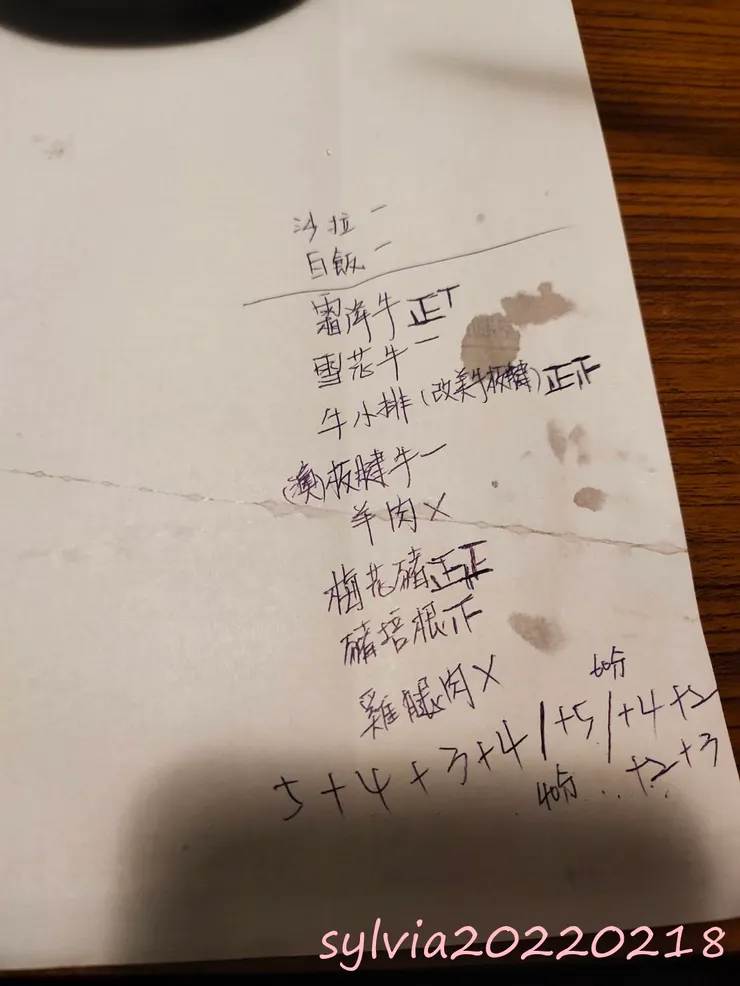 沙拉 一
白飯 一
霜降牛 正T
雪花牛 一
牛小排(改美牛板腱)正正
(澳)板腱牛 一
羊肉 X
梅花豬 正正
豬培根 正
雞腿肉 X
60分
5+4+3+4|+5|+4+2
40分 .. +2+3
sylvia20220218